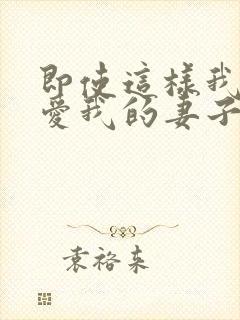 即使這樣我
愛我的妻子
袁裕來